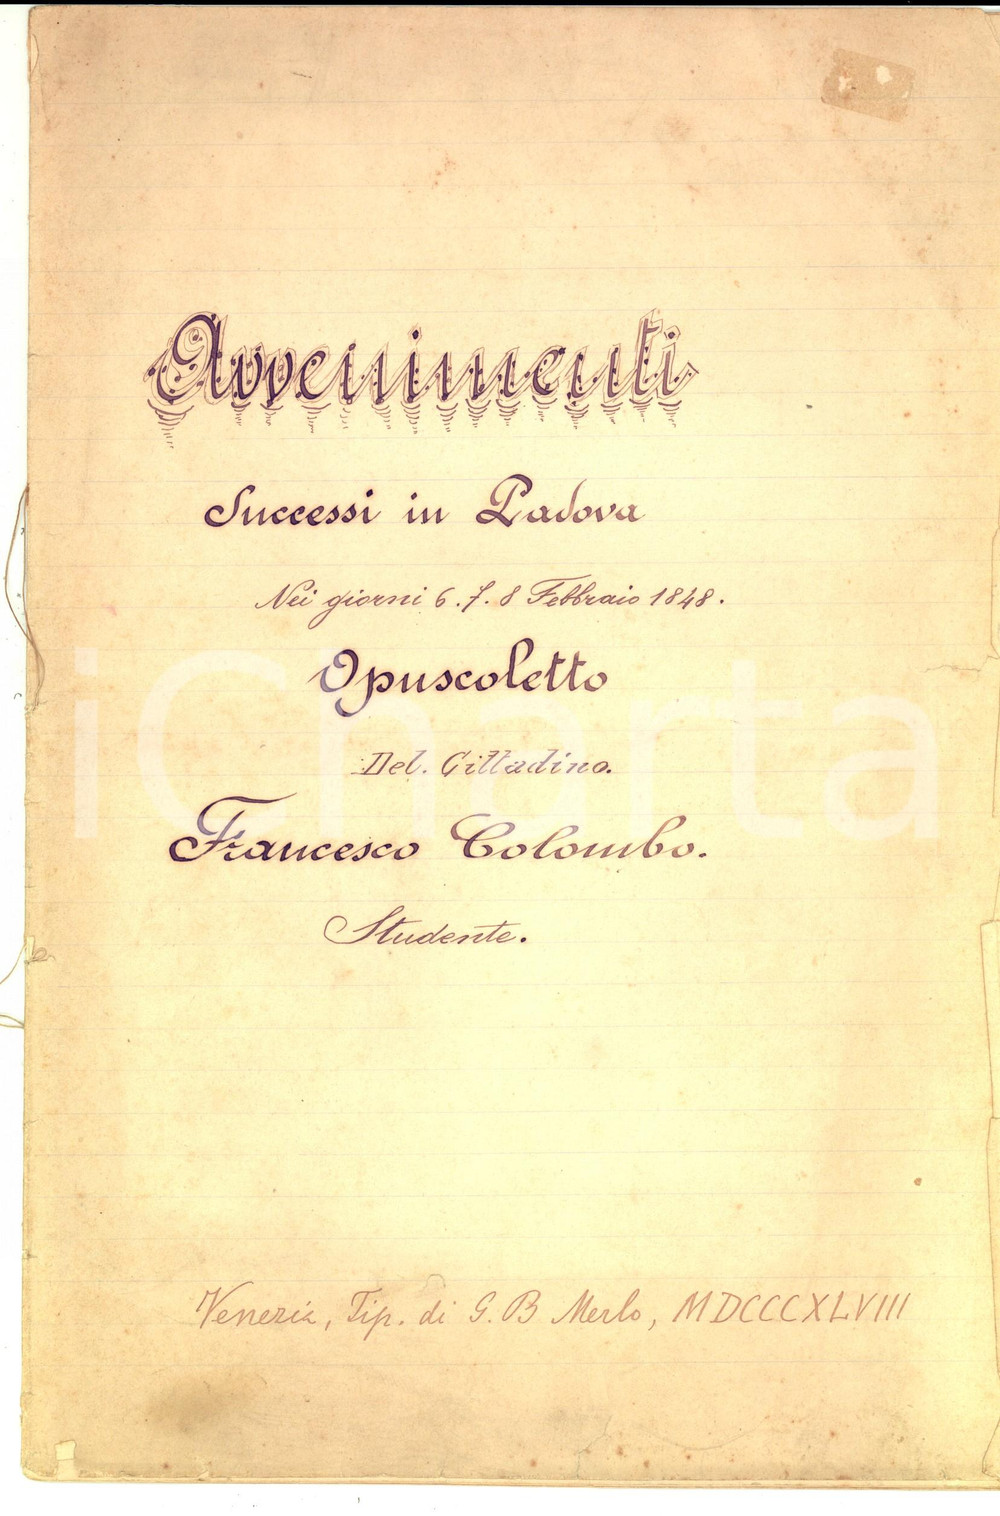 Avvenimenti
Successi in Padova
Nei giorni 6. 7. 8 Febbraio 1848.
Opuscoletto
Del. Cittadino.
Francesco Colombo.
Studente.
Venezia, Tip. di G. B Merlo, MDCCCXLVIII
iCharta